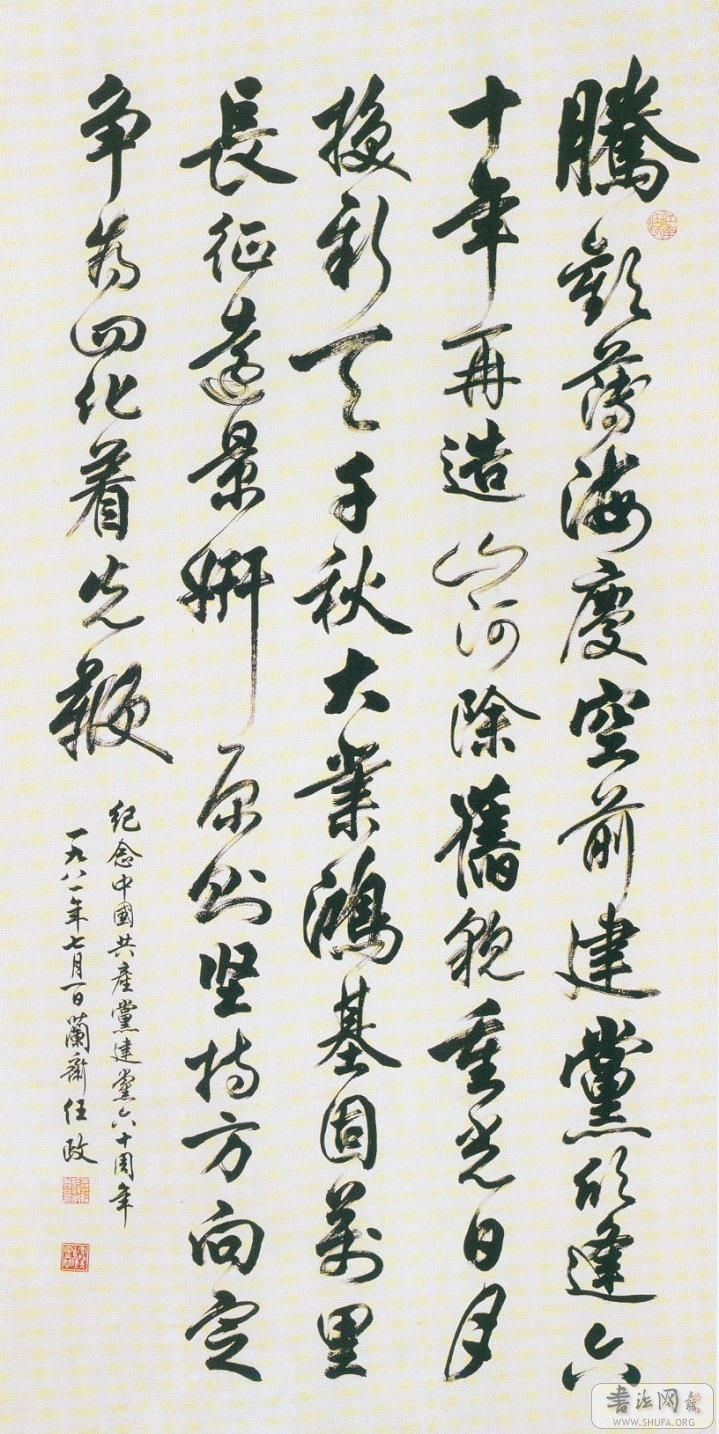 騰歡薄海慶空前建黨欣逢六
十年再造山河除舊貌重光日月
換新天千秋大業鴻基固萬里
長征遠景妍原則坚持方向定
争為四化着先鞭
紀念中國共產黨建黨六十周年
一九八一年七月一日蘭齋任政
书法网
WWW.SHUFA.ORG